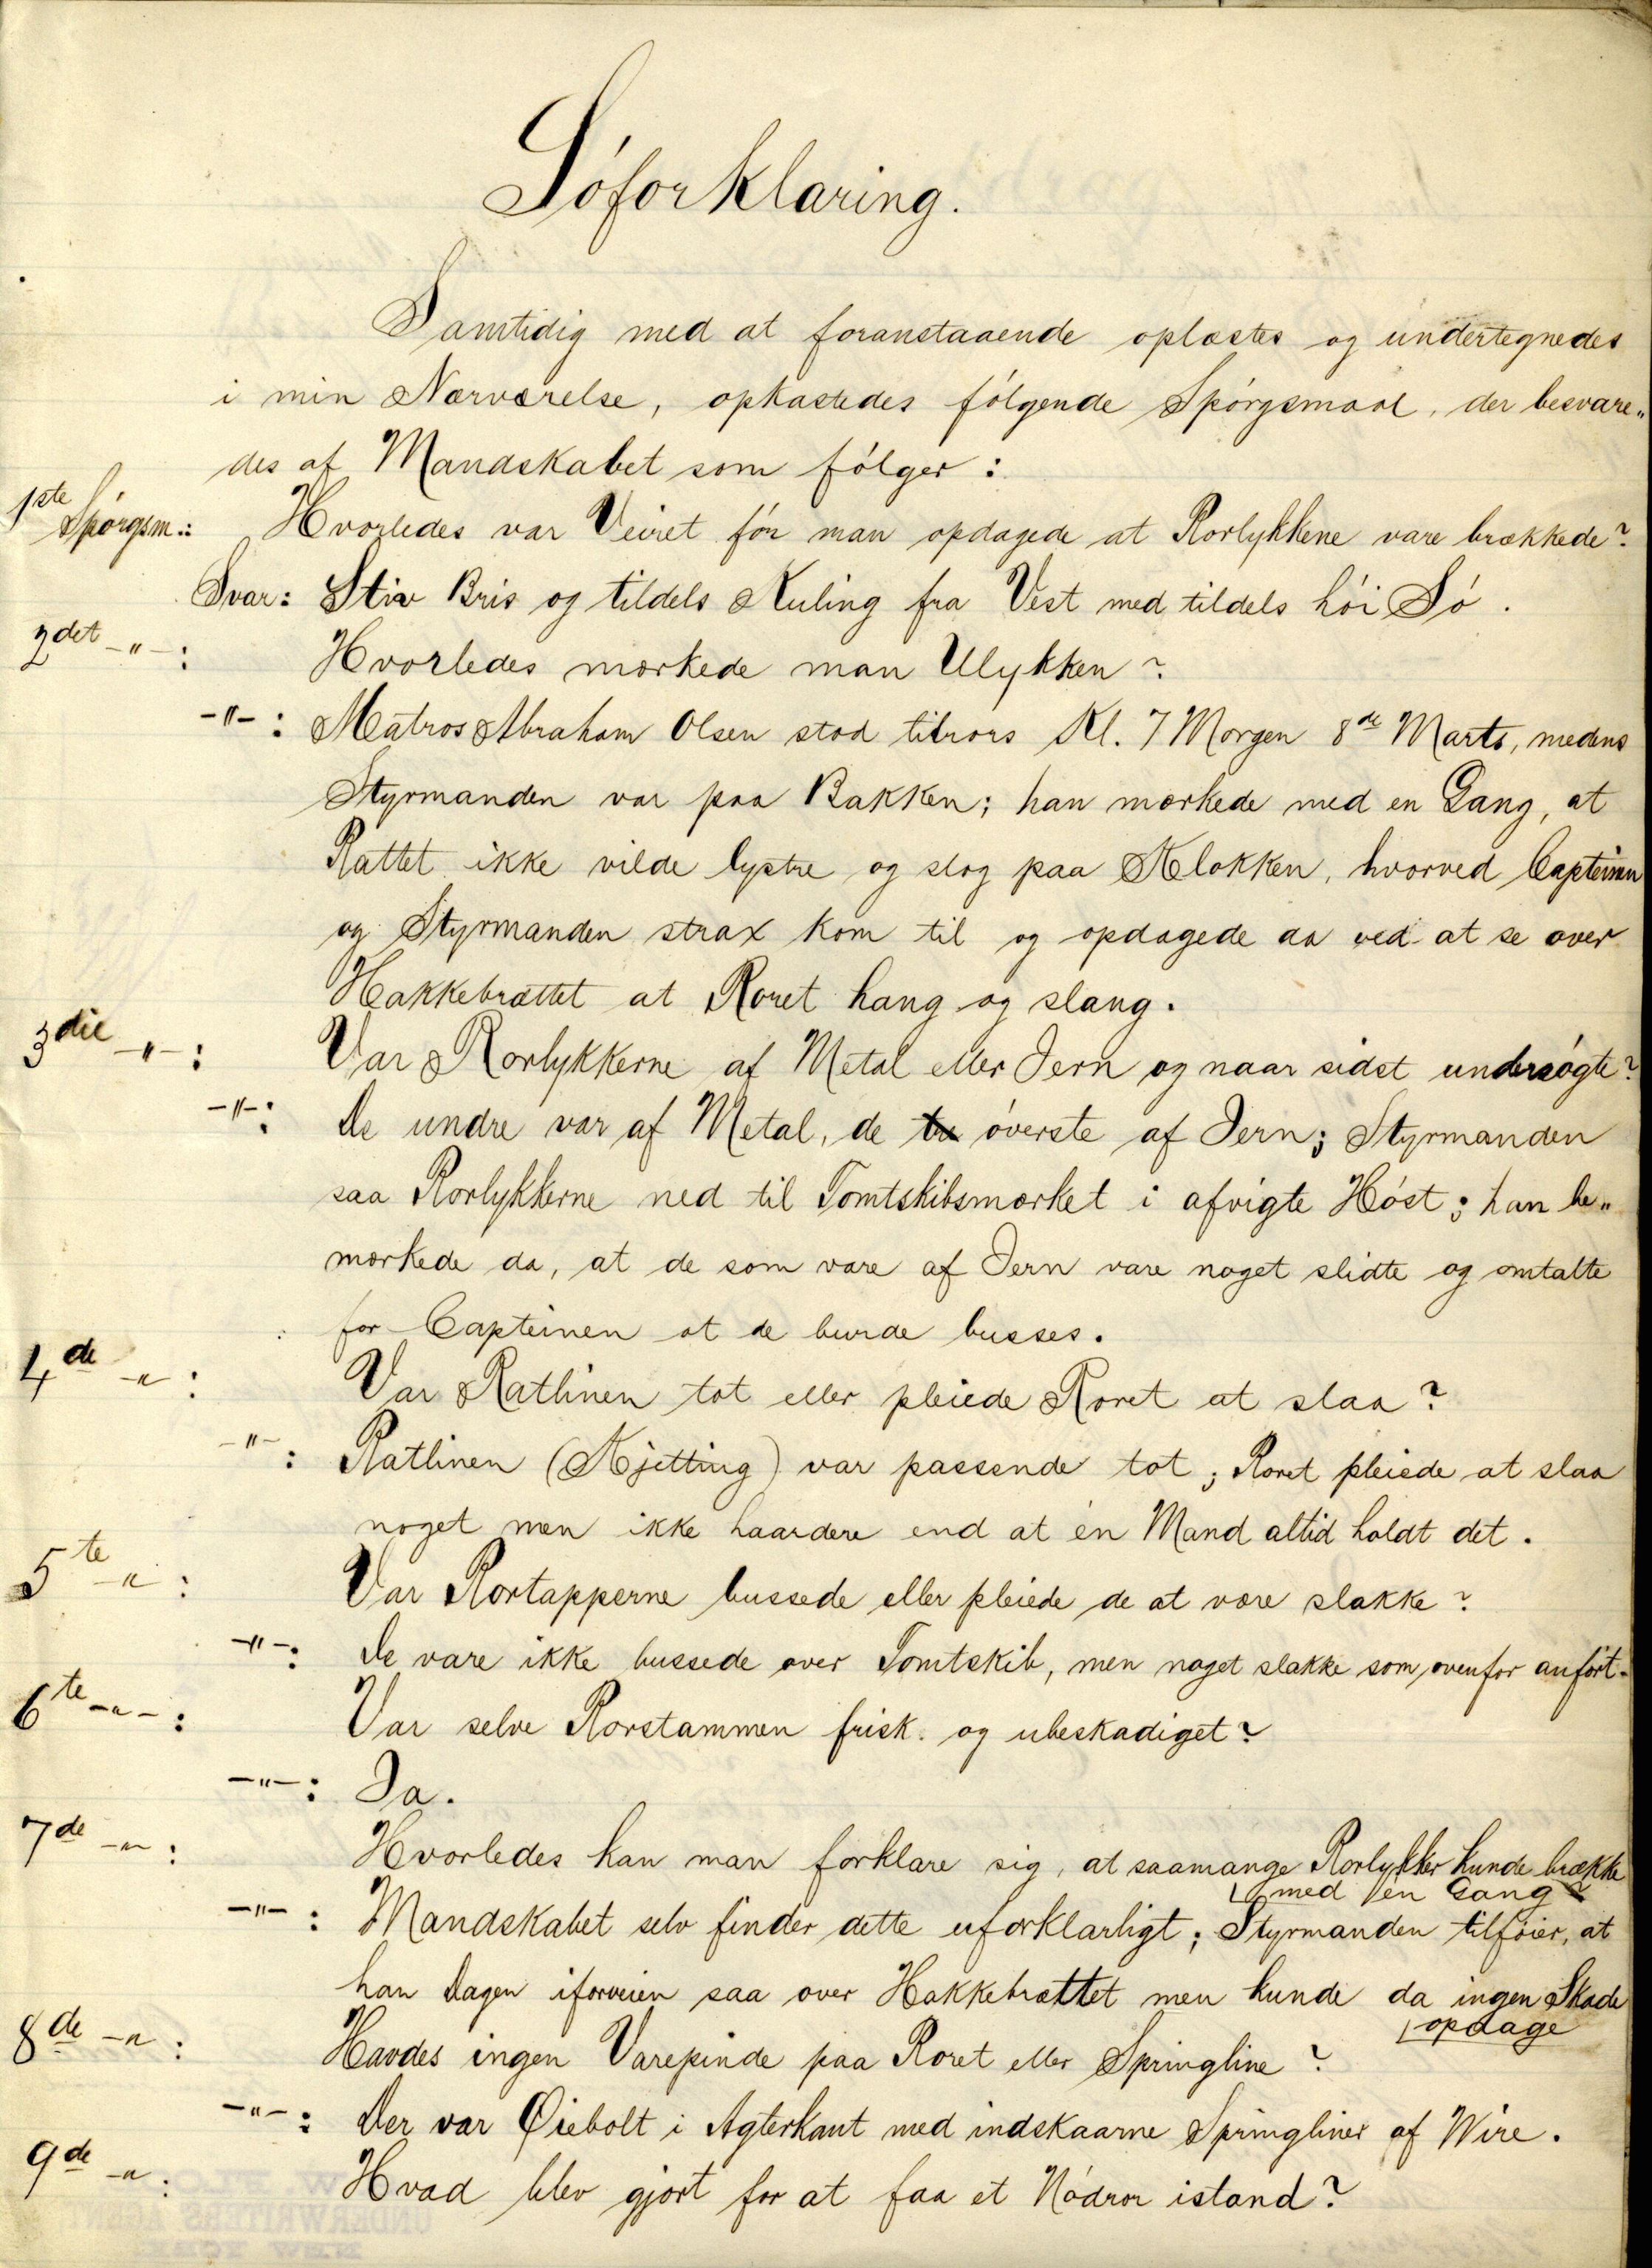 Søforklaring.
Samtidig med at foranstaaende oplæstes og undertegnedes
i min Nærværelse, opkastedes følgende Spørgsmaal, der besvare„
des af Mandskabet som følger:
1ste Spørgsm.: Hvorledes var Veiret før man opdagede at Rorlykkene vare brækkede?
Svar: Stiv Bris og tildels Kuling fra Vest med tildels høi Sø.
2det -"-: Hvorledes mærkede man Ulykken?
-"-: Matros Abraham Olsen stod tilrors Kl. 7 Morgen 8de Marts, medens
Styrmanden var paa Bakken; han mærkede med en Gang, at
Rattet ikke vilde lystre og slog paa Klokken, hvorved Capteinen
og Styrmanden strax kom til og opdagede da ved at se over
Hakkebrættet at Roret hang og slang.
3die -"-: Var Rorlykkerne af Metal eller Jern og naar sidst undersøgte?
-"-: De undre var af Metal, de tre øverste af Jern; Styrmanden
saa Rorlykkerne ned til Tomtskibsmærket i afvigte Høst; han be„
mærkede da, at de som vare af Jern vare noget slidte og omtalte
for Capteinen at de burde busses.
4de -"-: Var Ratlinen tot eller pleiede Roret at slaa?
-"-: Ratlinen (Kjetting) var passende tot; Roret pleiede at slaa
noget men ikke haardere end at én Mand altid holdt det.
5te -"-: Var Rortapperne bussede eller pleiede de at være slakke?
-"-: De vare ikke bussede over Tomtskib, men noget slakke som ovenfor anført.
6te -"-: Var selve Rorstammen frisk og ubeskadiget?
-"-: Ja.
7de -"-: Hvorledes kan man forklare sig, at saamange Rorlykker kunde brække
med en Gang?
-"-: Mandskabet selv finder dette uforklarligt; Styrmanden tilføier, at
han Dagen iforveien saa over Hakkebrættet men kunde da ingen Skade
opdage
8de -"-: Havdes ingen Varepinde paa Roret eller Springline?
-"-: Der var Øiebolt i Agterkant med indskaarne Springliner af Wire.
9de -"-: Hvad blev gjort for at faa et Nødror istand?